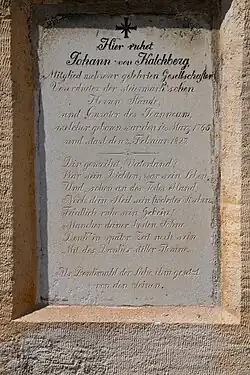 Hier ruhet
Johann von Kalchberg
Mitglied mehrerer gelehrten Gesellschaften
Verordneter der steiermärk'schen
Herren Stände,
und Curator des Joanneum,
welcher geboren wurden 15 März 1765
und starb den 3 Februar 1827
Dir geweihet, Vaterland!
War sein Dichten, war sein Leben,
Und schon an des Todes Rand,
Blieb dein Heil sein höchstes
Friedlich ruhe sein Gebein;
Mancher deiner besten Söhne
Denk' in später Zeit noch sein
Mit des Dankes stiller Thräne.
Als Denkmahl der Liebe ihm gesetzt
von den Seinen.